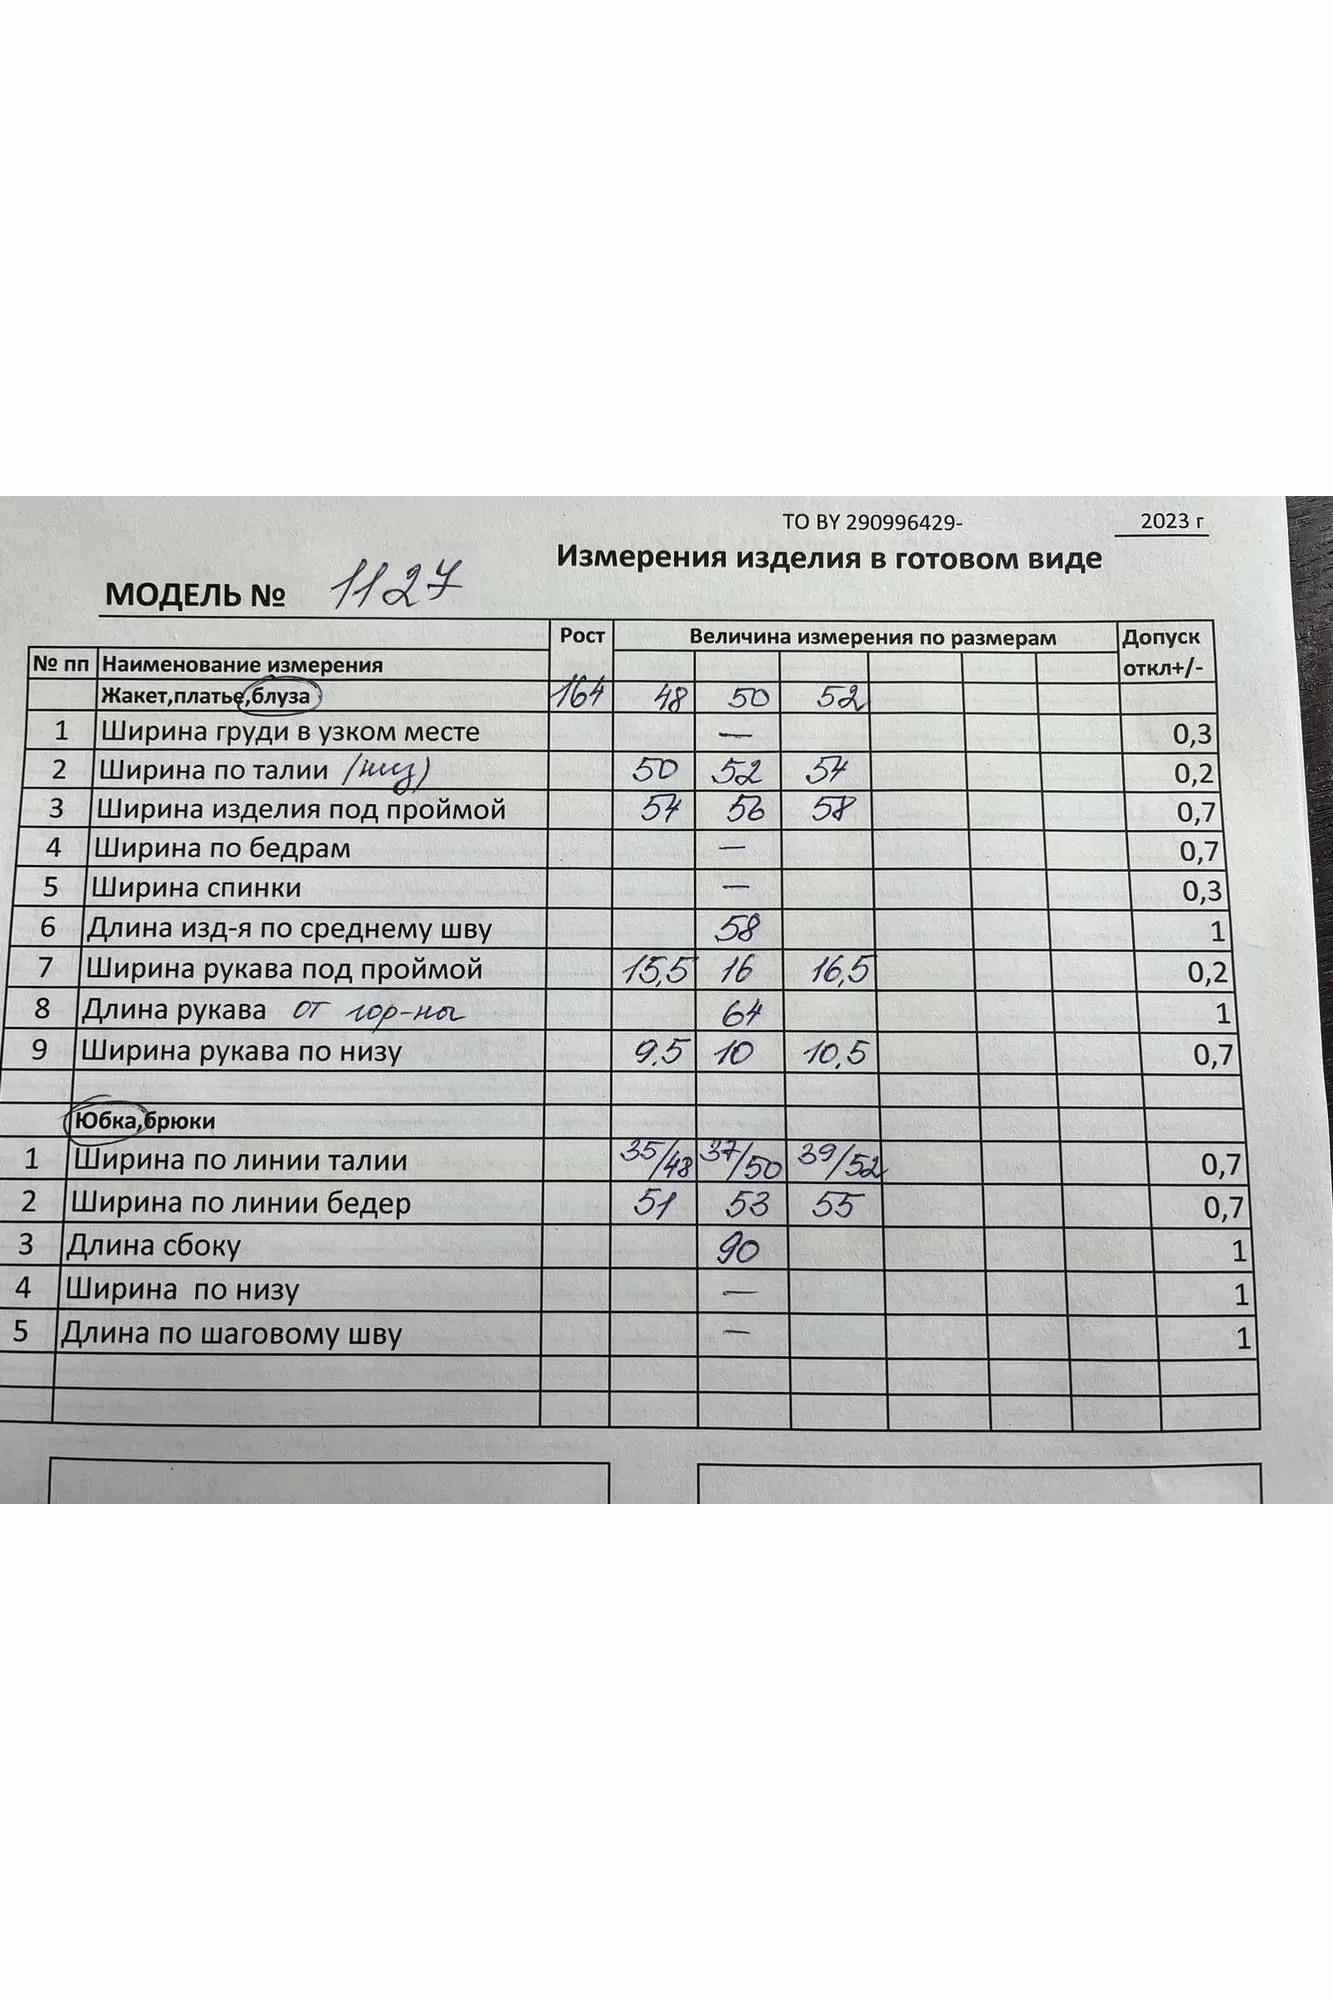 ТО BY 290996429- 2023 г
Измерения изделия в готовом виде
МОДЕЛЬ № 1127
Рост Величина измерения по размерам Допуск откл+/-
№ пп Наименование измерения
Жакет,платье,блуза 164 48 50 52
1 Ширина груди в узком месте — 0,3
2 Ширина по талии /низ) 50 52 54 0,2
3 Ширина изделия под проймой 54 56 58 0,7
4 Ширина по бедрам — 0,7
5 Ширина спинки — 0,3
6 Длина изд-я по среднему шву 58 1
7 Ширина рукава под проймой 15,5 16 16,5 0,2
8 Длина рукава от гор-ны 64 1
9 Ширина рукава по низу 9,5 10 10,5 0,7
Юбка,брюки
1 Ширина по линии талии 35/48 37/50 39/52 0,7
2 Ширина по линии бедер 51 53 55 0,7
3 Длина сбоку 90 1
4 Ширина по низу — 1
5 Длина по шаговому шву — 1